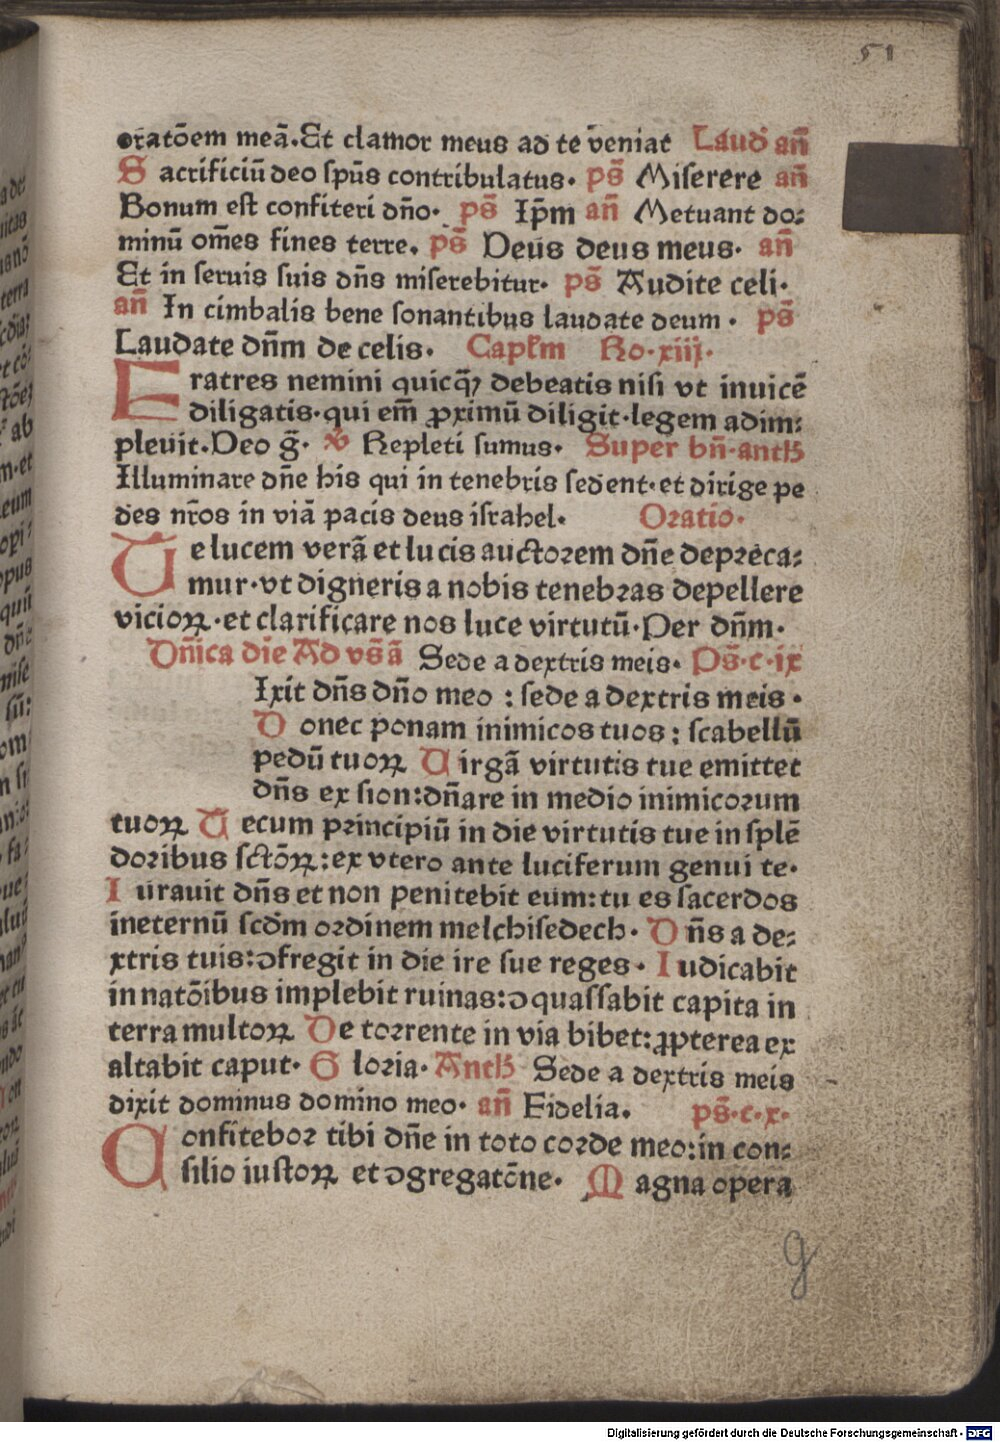 51
oratōem meā. Et clamor meus ad te veniat Laud añ
Sacrificiū deo spūs contribulatus. ps̄ Miserere añ
Bonum est confiteri dño. ps̄ Ip̄m añ Metuant do:
minū om̄es fines terre. ps̄ Deus deus meus. añ
Et in seruis suis dñs miserebitur. ps̄ Audite celi.
añ In cimbalis bene sonantibus laudate deum. ps̄
Laudate dñm de celis. Capľm Ro.xiij.
Fratres nemini quicq̄ꝫ debeatis nisi vt inuicē
diligatis. qui em̄ ꝓximū diligit. legem adim:
pleuit. Deo ḡ. ℣ Repleti sumus. Super bñ. antħ
Illuminare dñe his qui in tenebris sedent. et dirige pe
des nr̄os in viā pacis deus israhel. Oratio.
Te lucem verā et lucis auctorem dñe depreca:
mur. vt digneris a nobis tenebras depellere
vicioꝝ. et clarificare nos luce virtutū. Per dñm.
Dñica die Ad vs̄ā Sede a dextris meis. Ps̄.c.ix
Ixit dñs dño meo : sede a dextris meis .
Donec ponam inimicos tuos : scabellū
pedū tuoꝝ Uirgā virtutis tue emittet
dñs ex sion: dñare in medio inimicorum
tuoꝝ Tecum principiū in die virtutis tue in splē
doribus sctōꝝ: ex vtero ante luciferum genui te.
Iurauit dñs et non penitebit eum: tu es sacerdos
ineternū scďm ordinem melchisedech. Dñs a de:
xtris tuis: ↄfregit in die ire sue reges. Iudicabit
in natōibus implebit ruinas: ↄquassabit capita in
terra multoꝝ De torrente in via bibet: ꝓpterea ex
altabit caput. Gloria. Antħ Sede a dextris meis
dixit dominus domino meo. añ Fidelia. ps̄.c.x.
Confitebor tibi dñe in toto corde meo: in con:
silio iustoꝝ et ↄgregatōne. Magna opera
g
Digitalisierung gefördert durch die Deutsche Forschungsgemeinschaft - DFG